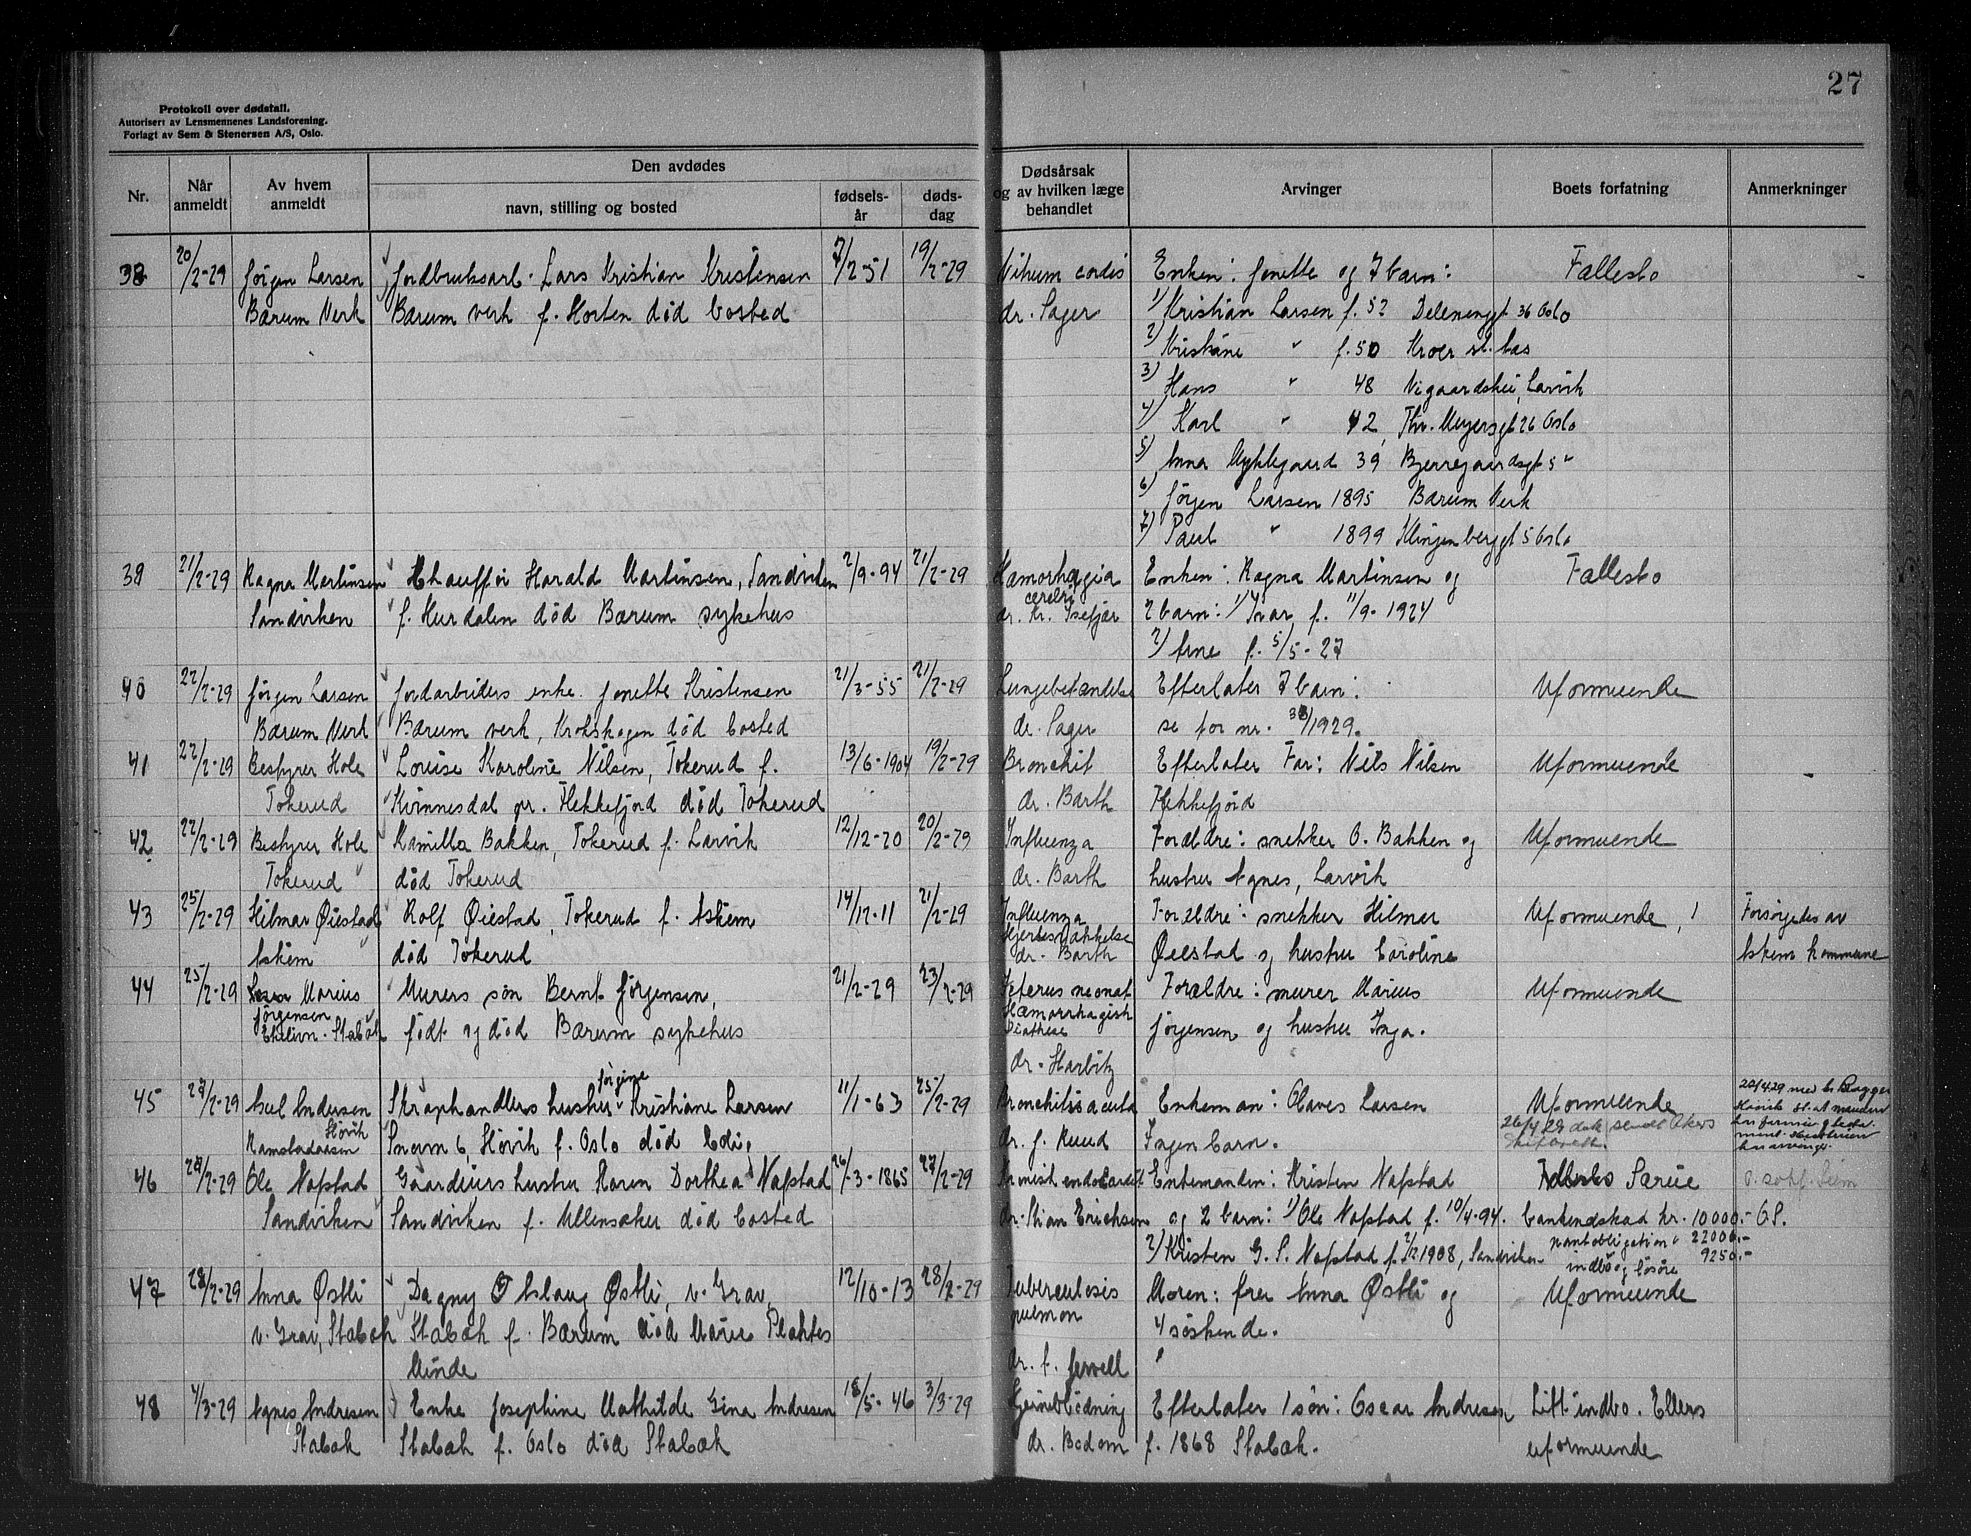 27
Protokoll over dødsfall.
Autorisert av Lensmennenes Landsforening.
Forlagt av Sem & Stenersen A/S, Oslo.
Nr. Når anmeldt Av hvem anmeldt Den avdødes navn, stilling og bosted fødsels-år døds-dag Dødsårsak og av hvilken læge behandlet Arvinger Boets forfatning Anmerkninger
38 20/2-29 Jørgen Larsen Jordbruksarb. Lars Kristian Kristensen 7/2-51 19/2-29 Vitium cordis Enken: Jonette og 7 barn: Fællesbo
Bærum Verk Bærum verk f. Horten död bosted dr. Sager 1) Kristian Larsen f. 52 36 Oslo
2) Kristiane " f. 50 Kroer st. Ås
3) Hans " 48 Larvik
4) Karl " 42 Thv. Meyersgt 26 Oslo
5) Anna 39 Bjerregaardsgt 5 "
6) Jørgen Larsen 1895 Bærum Verk
7) Paul " 1899 Klingenberggt 5 Oslo
39 21/2-29 Ragna Martinsen Chauffør Harald Martinsen, Sandviken 2/9-94 21/2-29 Hæmorhagia Enken: Ragna Martinsen og Fællesbo
cerebri
Sandviken f. Hurdalen död Bærum sykehus dr. Kr. 2 barn: 1) Ivar f. 11/9-1924
2) Arne f. 5/5-27
40 22/2-29 Jørgen Larsen Jordarbeiders enke Jonette Kristensen 21/3-55 21/2-29 Lungebetændelse Efterlater 7 barn: Uformuende
Bærum Verk Bærum verk, Krokskogen död bosted dr. Sager se for nr. 38/1929.
41 22/2-29 Bestyrer Hole Louise Karoline Nilsen, Tokerud f. 13/6-1904 19/2-29 Bronchit Efterlater Far: Nils Nilsen Uformuende
Tokerud Kvinnesdal pr. Flekkefjord död Tokerud dr. Barth Flekkefjord
42 22/2-29 Bestyrer Hole Kamilla Bakken, Tokerud f. Larvik 12/12-20 20/2-29 Influenza Forældre: snekker O. Bakken og Uformuende
Tokerud död Tokerud dr. Barth hustru Agnes, Larvik
43 25/2-29 Hilmar Øiestad Rolf Øiestad, Tokerud f. Askim 14/12-11 21/2-29 Influenza Forældre: snekker Hilmar Uformuende Forsørgedes av
Askim död Tokerud dr. Barth Øiestad og hustru Caroline Askim kommune
44 25/2-29 Marius Murers søn Bernt Jørgensen, 21/2-29 23/2-29 Icterus neonat Forældre: murer Marius Uformuende
Jørgensen Hæmorrhagisk
Stabæk født og död Bærum sykehus Diathese Jørgensen og hustru Inga.
dr. Harbitz
45 27/2-29 Axel Andersen Skraphandlers hustru Jørgine Kristiane Larsen 11/1-63 25/2-29 Bronchitis acuta Enkeman: Olaves Larsen Uformuende
Høvik Snoveien 6, Høvik f. Oslo död dr. J. Ruud Ingen barn.
46 27/2-29 Ole Nafstad Gaardeiers hustru Karen Dorthea Nafstad 26/3-1865 27/2-29 Kronisk endocardit Enkemanden: Kristen Nafstad Særeie
Sandviken Sandviken f. Ullensaker död bosted dr. Stian Erichsen og 2 barn: 1) Ole Nafstad f. 10/4-94. bankindskud kr. 10000.-
2) Kristen G. S. Nafstad f. 2/2 1908, Sandviken pantobligation " 22000.-
indbo og løsøre 9250.-
47 28/2-29 Anna Østli Dagny Aslaug Østli, v. Grav, 12/10-13 28/2-29 Tuberculosis Moren: fru Anna Østli og Uformuende
v. Grav, Stabæk Stabæk f. Bærum död Marie Plahtes pulmon 4 søskende.
Minde dr. J. Jervell
48 4/3-29 Agnes Andresen Enke Josephine Mathilde Gina Andresen 18/5-46 3/3-29 Hjerneblødning Efterlater 1 søn: Oscar Andresen Litt indbo. Ellers
Stabæk Stabæk f. Oslo död Stabæk dr. Bodom f. 1868 Stabæk. uformuende